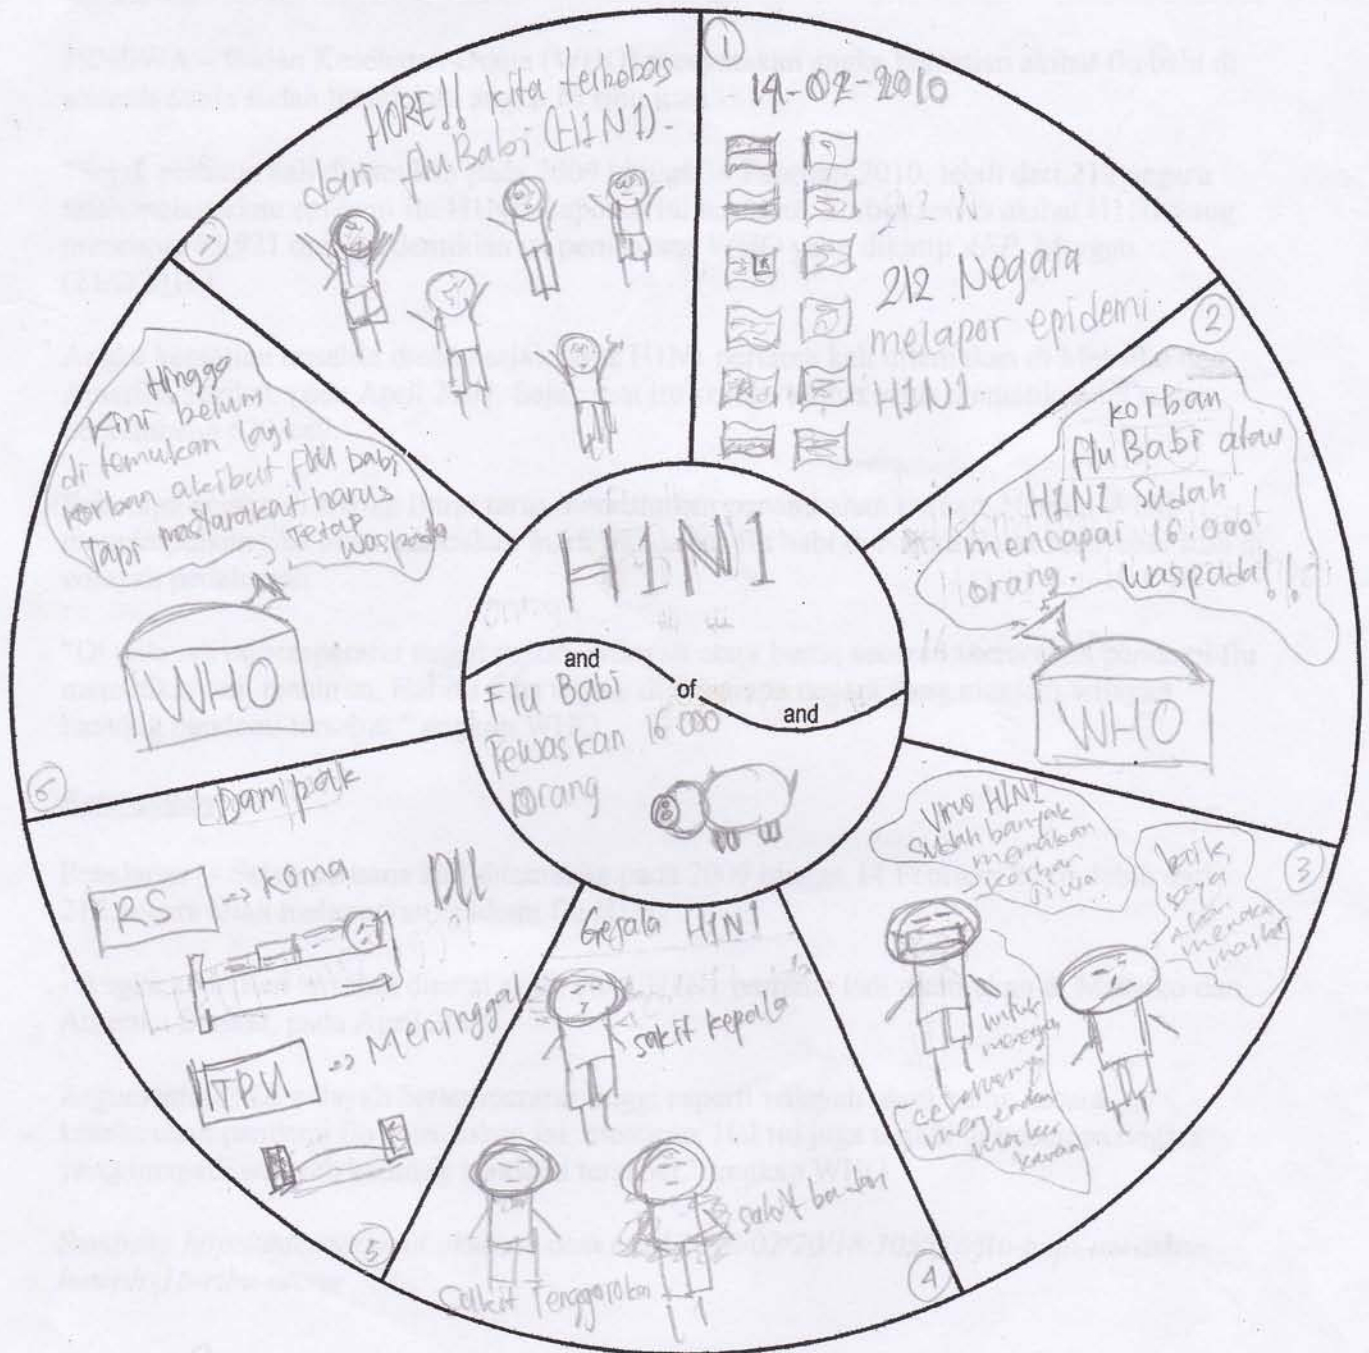 H1N1
and
of
and
Flu Babi
Tewaskan 16 000
orang
1
14-02-2010
212 Negara
melapor epidemi
H1N1
2
korban
flu Babi atau
H1N1 Sudah
mencapai 16.000
orang. waspada!!!
WHO
3
Virus H1N1
sudah banyak
memakan
korban
jiwa.
baik,
saya
akan
memakai
masker
untuk
mencegah
4
Gejala H1N1
sakit kepala
sakit badan
Sakit Tenggorokan
5
Dampak
RS → Koma
TPU → Meninggal
6
Hingga
kini belum
di temukan lagi
korban akibat flu babi
tapi masyarakat harus
Tetap
waspada
WHO
7
HORE!! kita terbebas
dari flu Babi (H1N1).